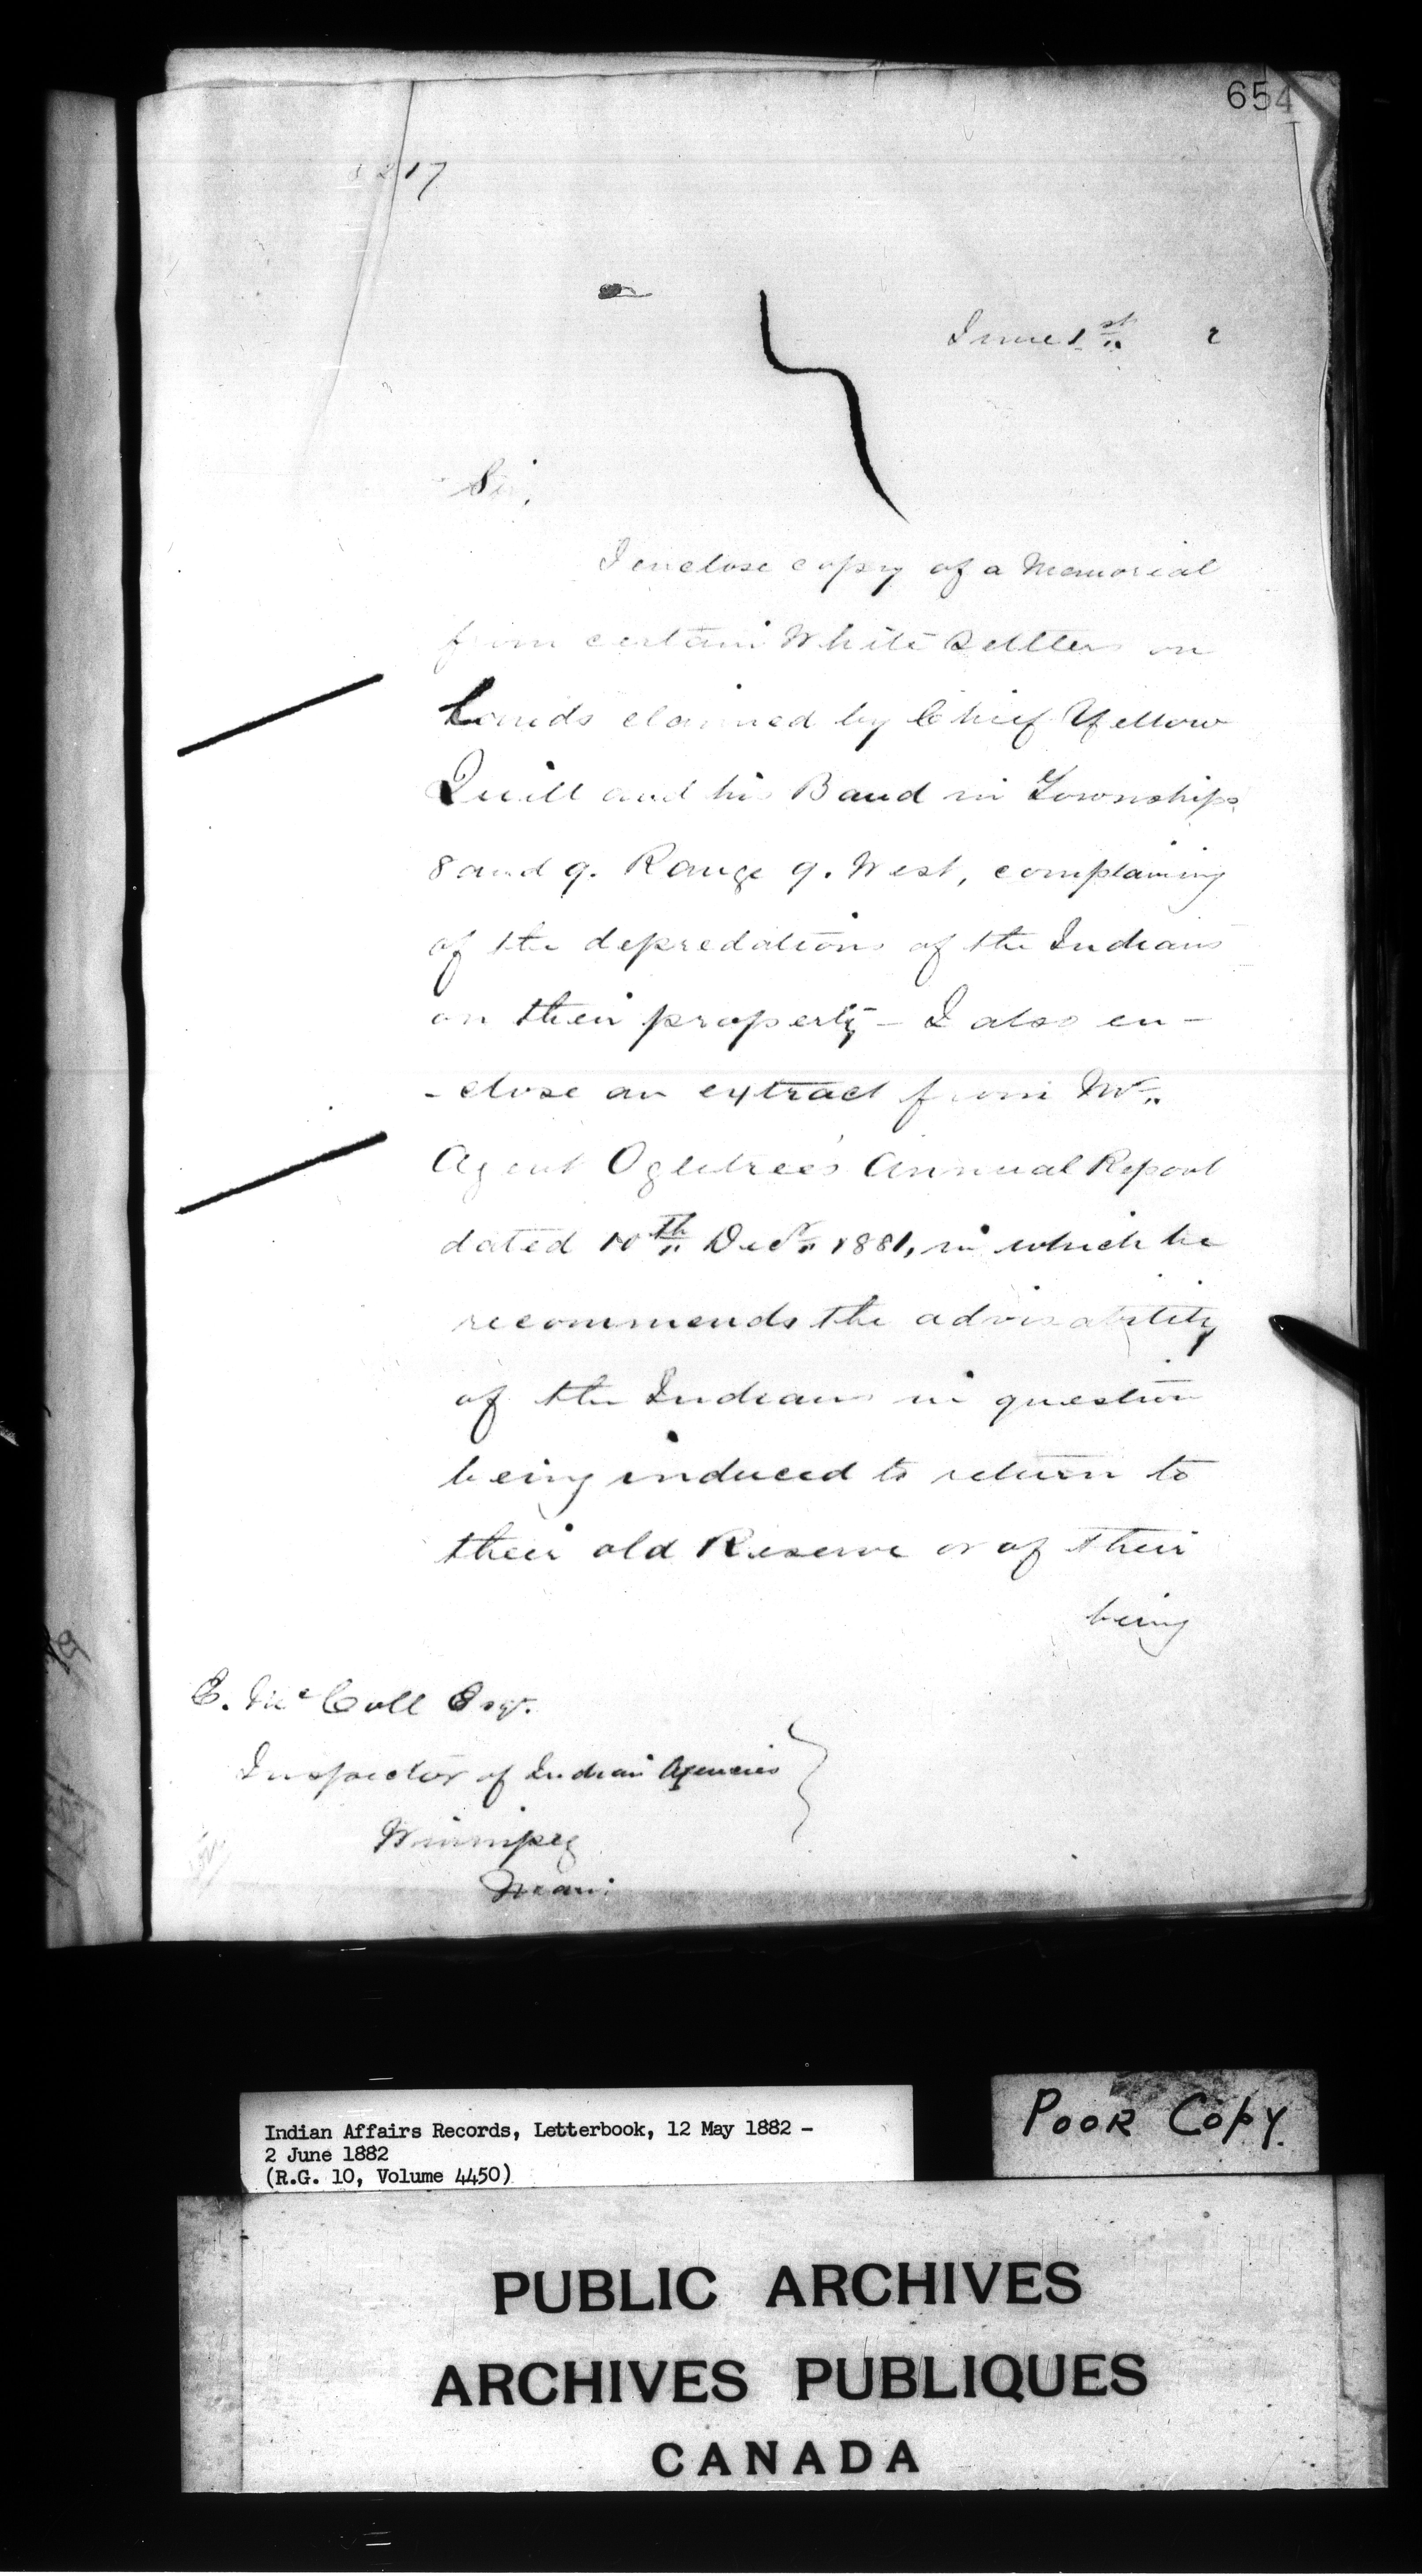 654
217
June 1st 2
Sir,
I enclose copy of a Memorial
from certain White Settlers on
Lands claimed by Chief Yellow
Quill and his Band in Townships
8 and 9. Range 9. West, complaining
of the depredations of the Indians
on their property - I also en-
-close an extract from Mr.
Agent Ogletree's Annual Report
dated 10th Decr. 1881, in which he
recommends the advisability
of the Indians in question
being induced to return to
their old Reserve or of their
being
E. McColl Esqr.
Inspector of Indian Agencies
Winnipeg
Man:
Indian Affairs Records, Letterbook, 12 May 1882 -
2 June 1882
(R.G. 10, Volume 4450)
POOR COPY.
PUBLIC ARCHIVES
ARCHIVES PUBLIQUES
CANADA